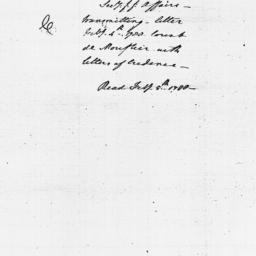 Secy f. f. Affairs —
transmitting letter
Feby. 4th. from Count
de Moustier with
letters of credence —
Read Feby 5th. 1788 —